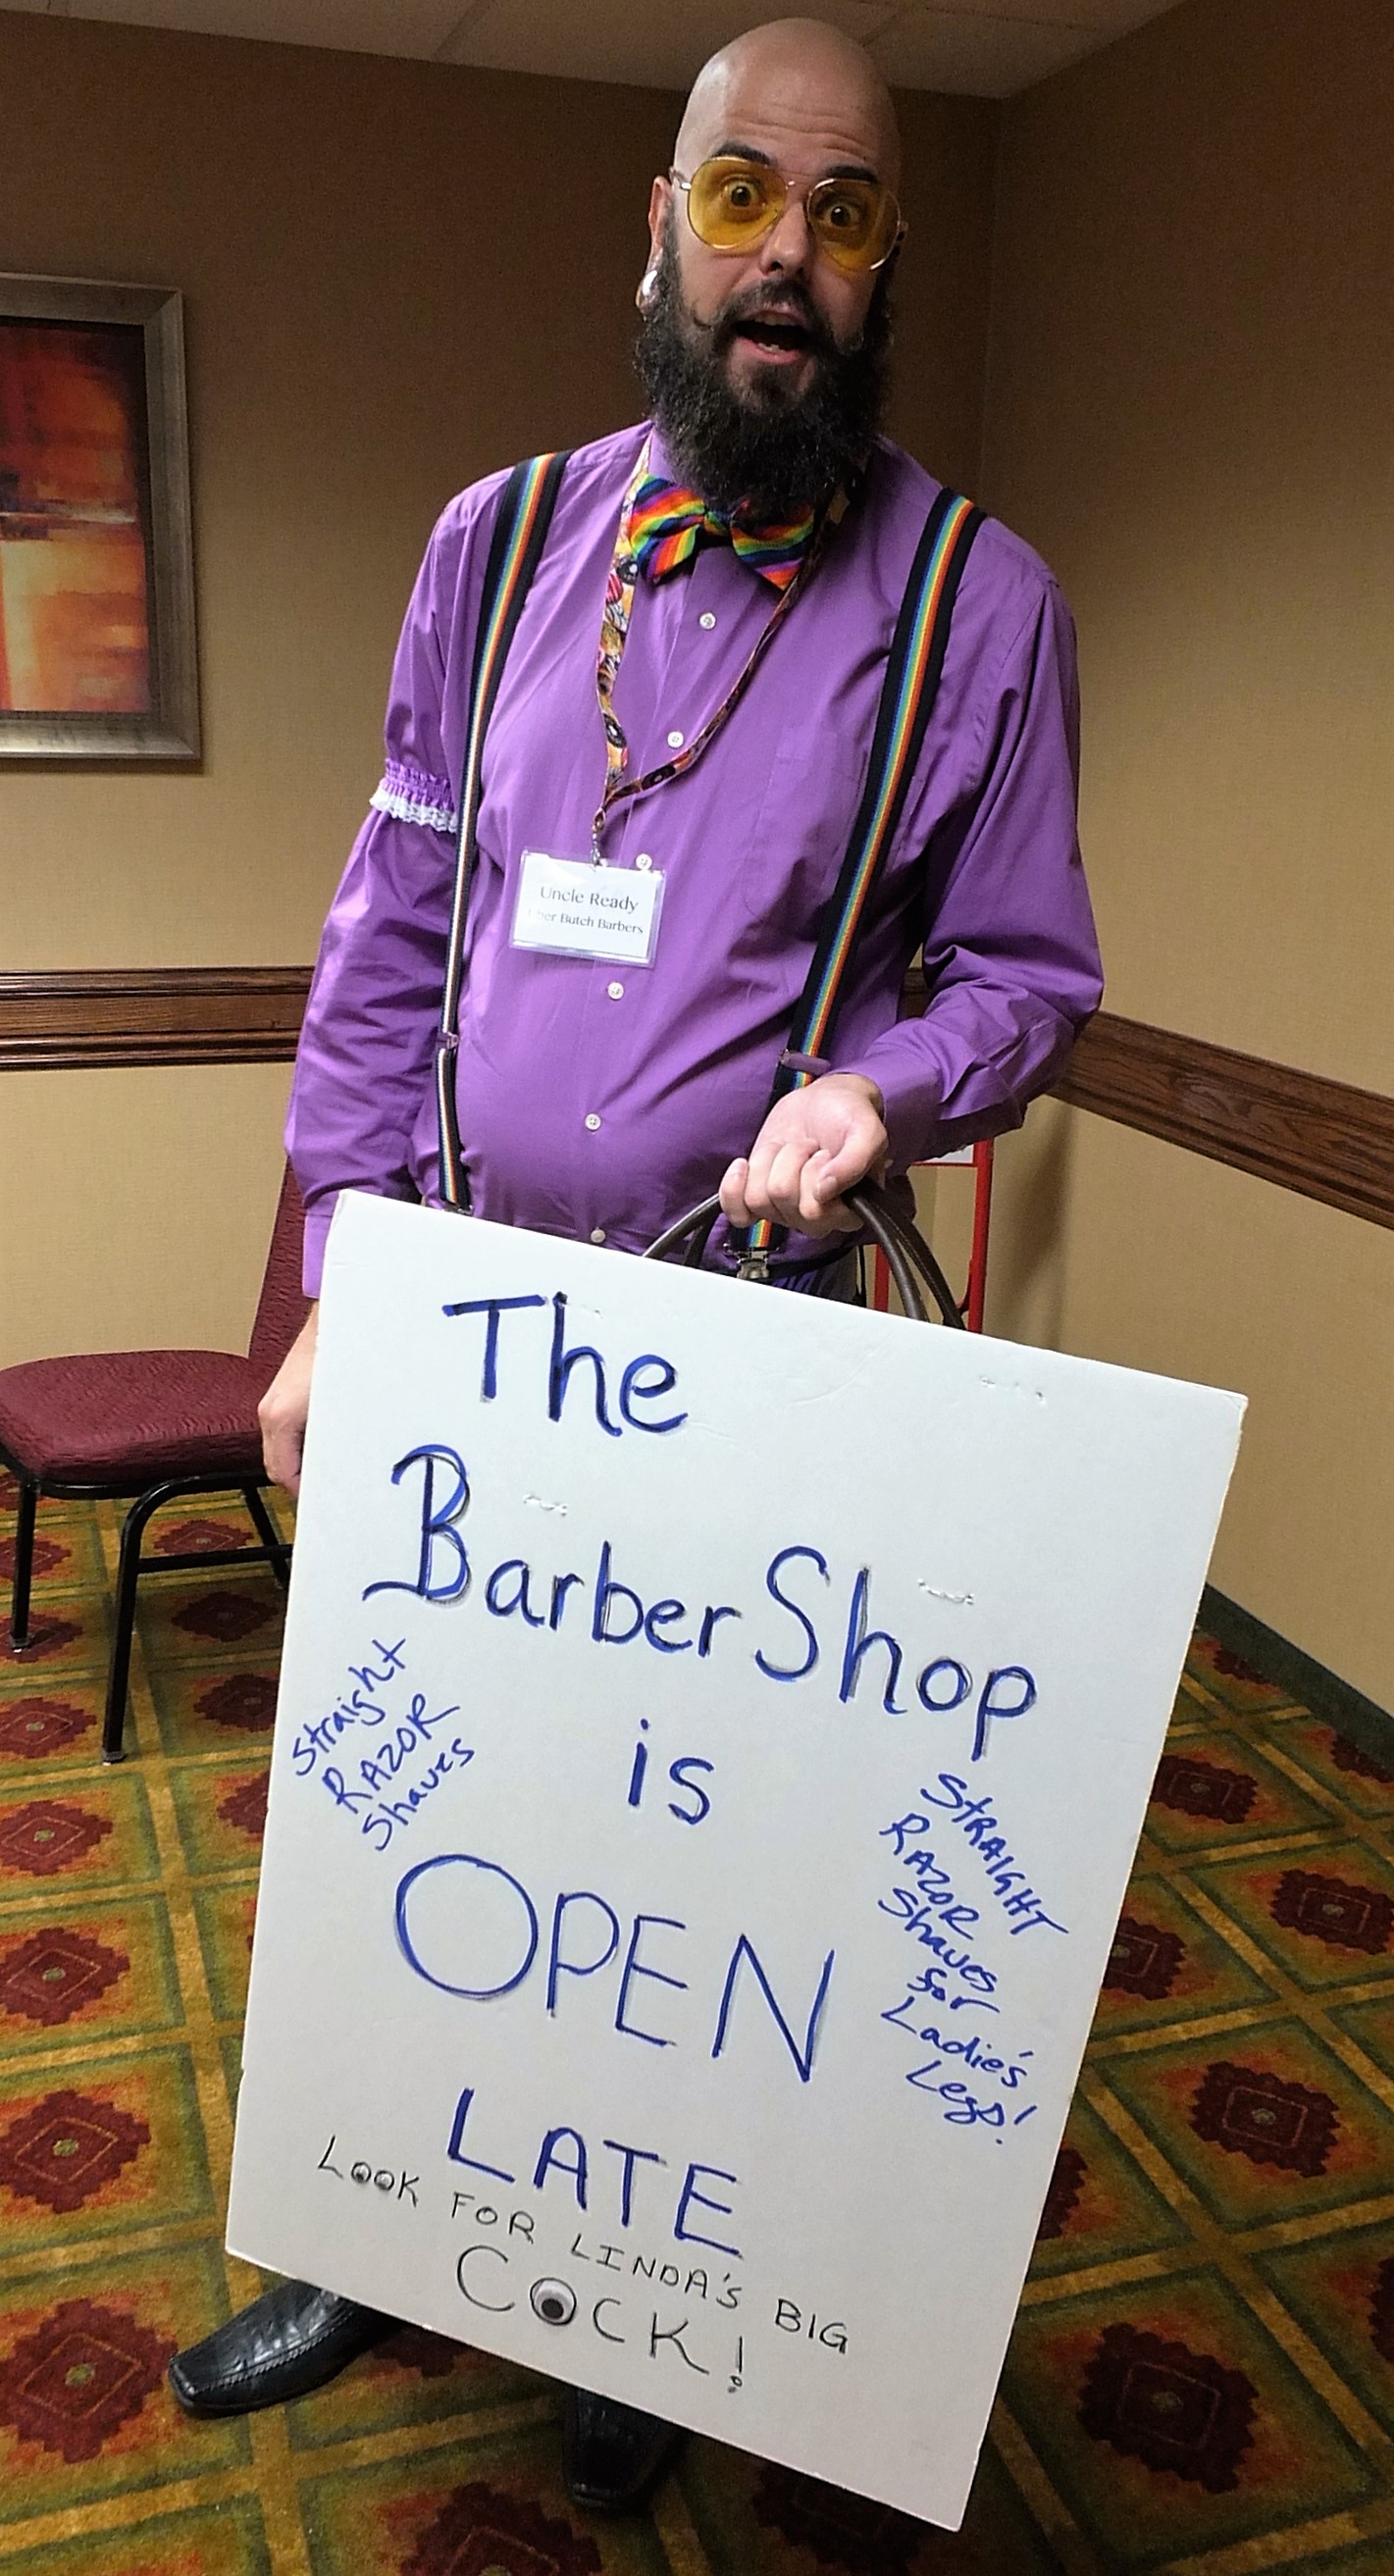 Uncle Ready
Butch Barbers
The
BarberShop
is
Straight
RAZOR
Shaves
STRAIGHT
RAZOR
Shaves
for
Ladie's
Legs!
OPEN
LATE
LOOK FOR LINDA'S BIG
COCK!